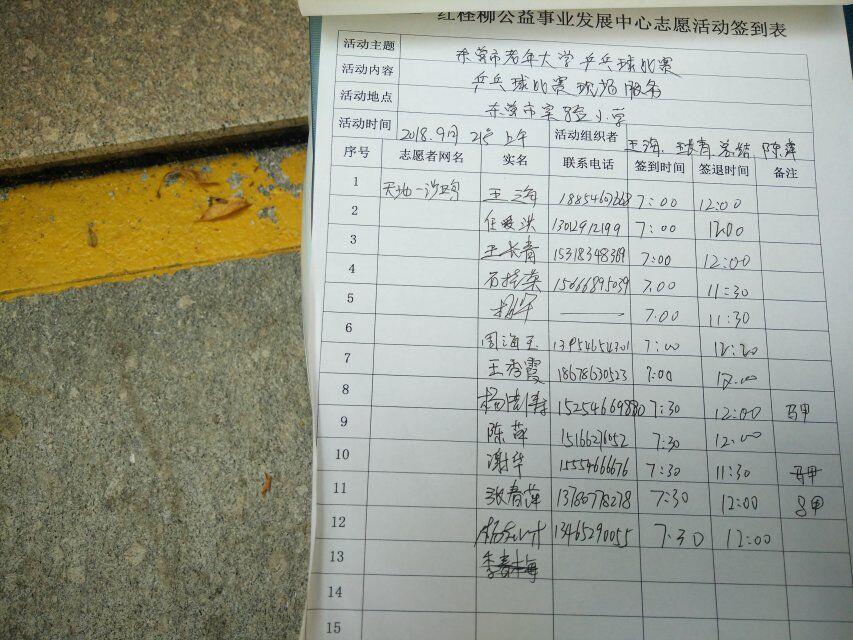 红柽柳公益事业发展中心志愿活动签到表
活动主题 东营市老年大学乒乓球比赛
活动内容 乒乓球比赛现场服务
活动地点 东营市实验小学
活动时间 2018.9月 上午 活动组织者 王海 王长青 总结 陈萍
序号 志愿者网名 实名 联系电话 签到时间 签退时间 备注
1 天地一沙鸥 王海 7:00 12:00
2 13012912199 7:00 12:00
3 王长青 15318348369 7:00 12:00
4 15666895039 7:00 11:30
5 7:00 11:30
6 周海玉 13954654301 7:00
7 王秀霞 18678630523 7:00 12:00
8 15254669880 7:30 12:00 马甲
9 陈萍 15166276052 7:30 12:00
10 谢华 15554666676 7:30 11:30 马甲
11 张春萍 13780778278 7:30 12:00 马甲
12 13465290055 7:30 12:00
13
14
15